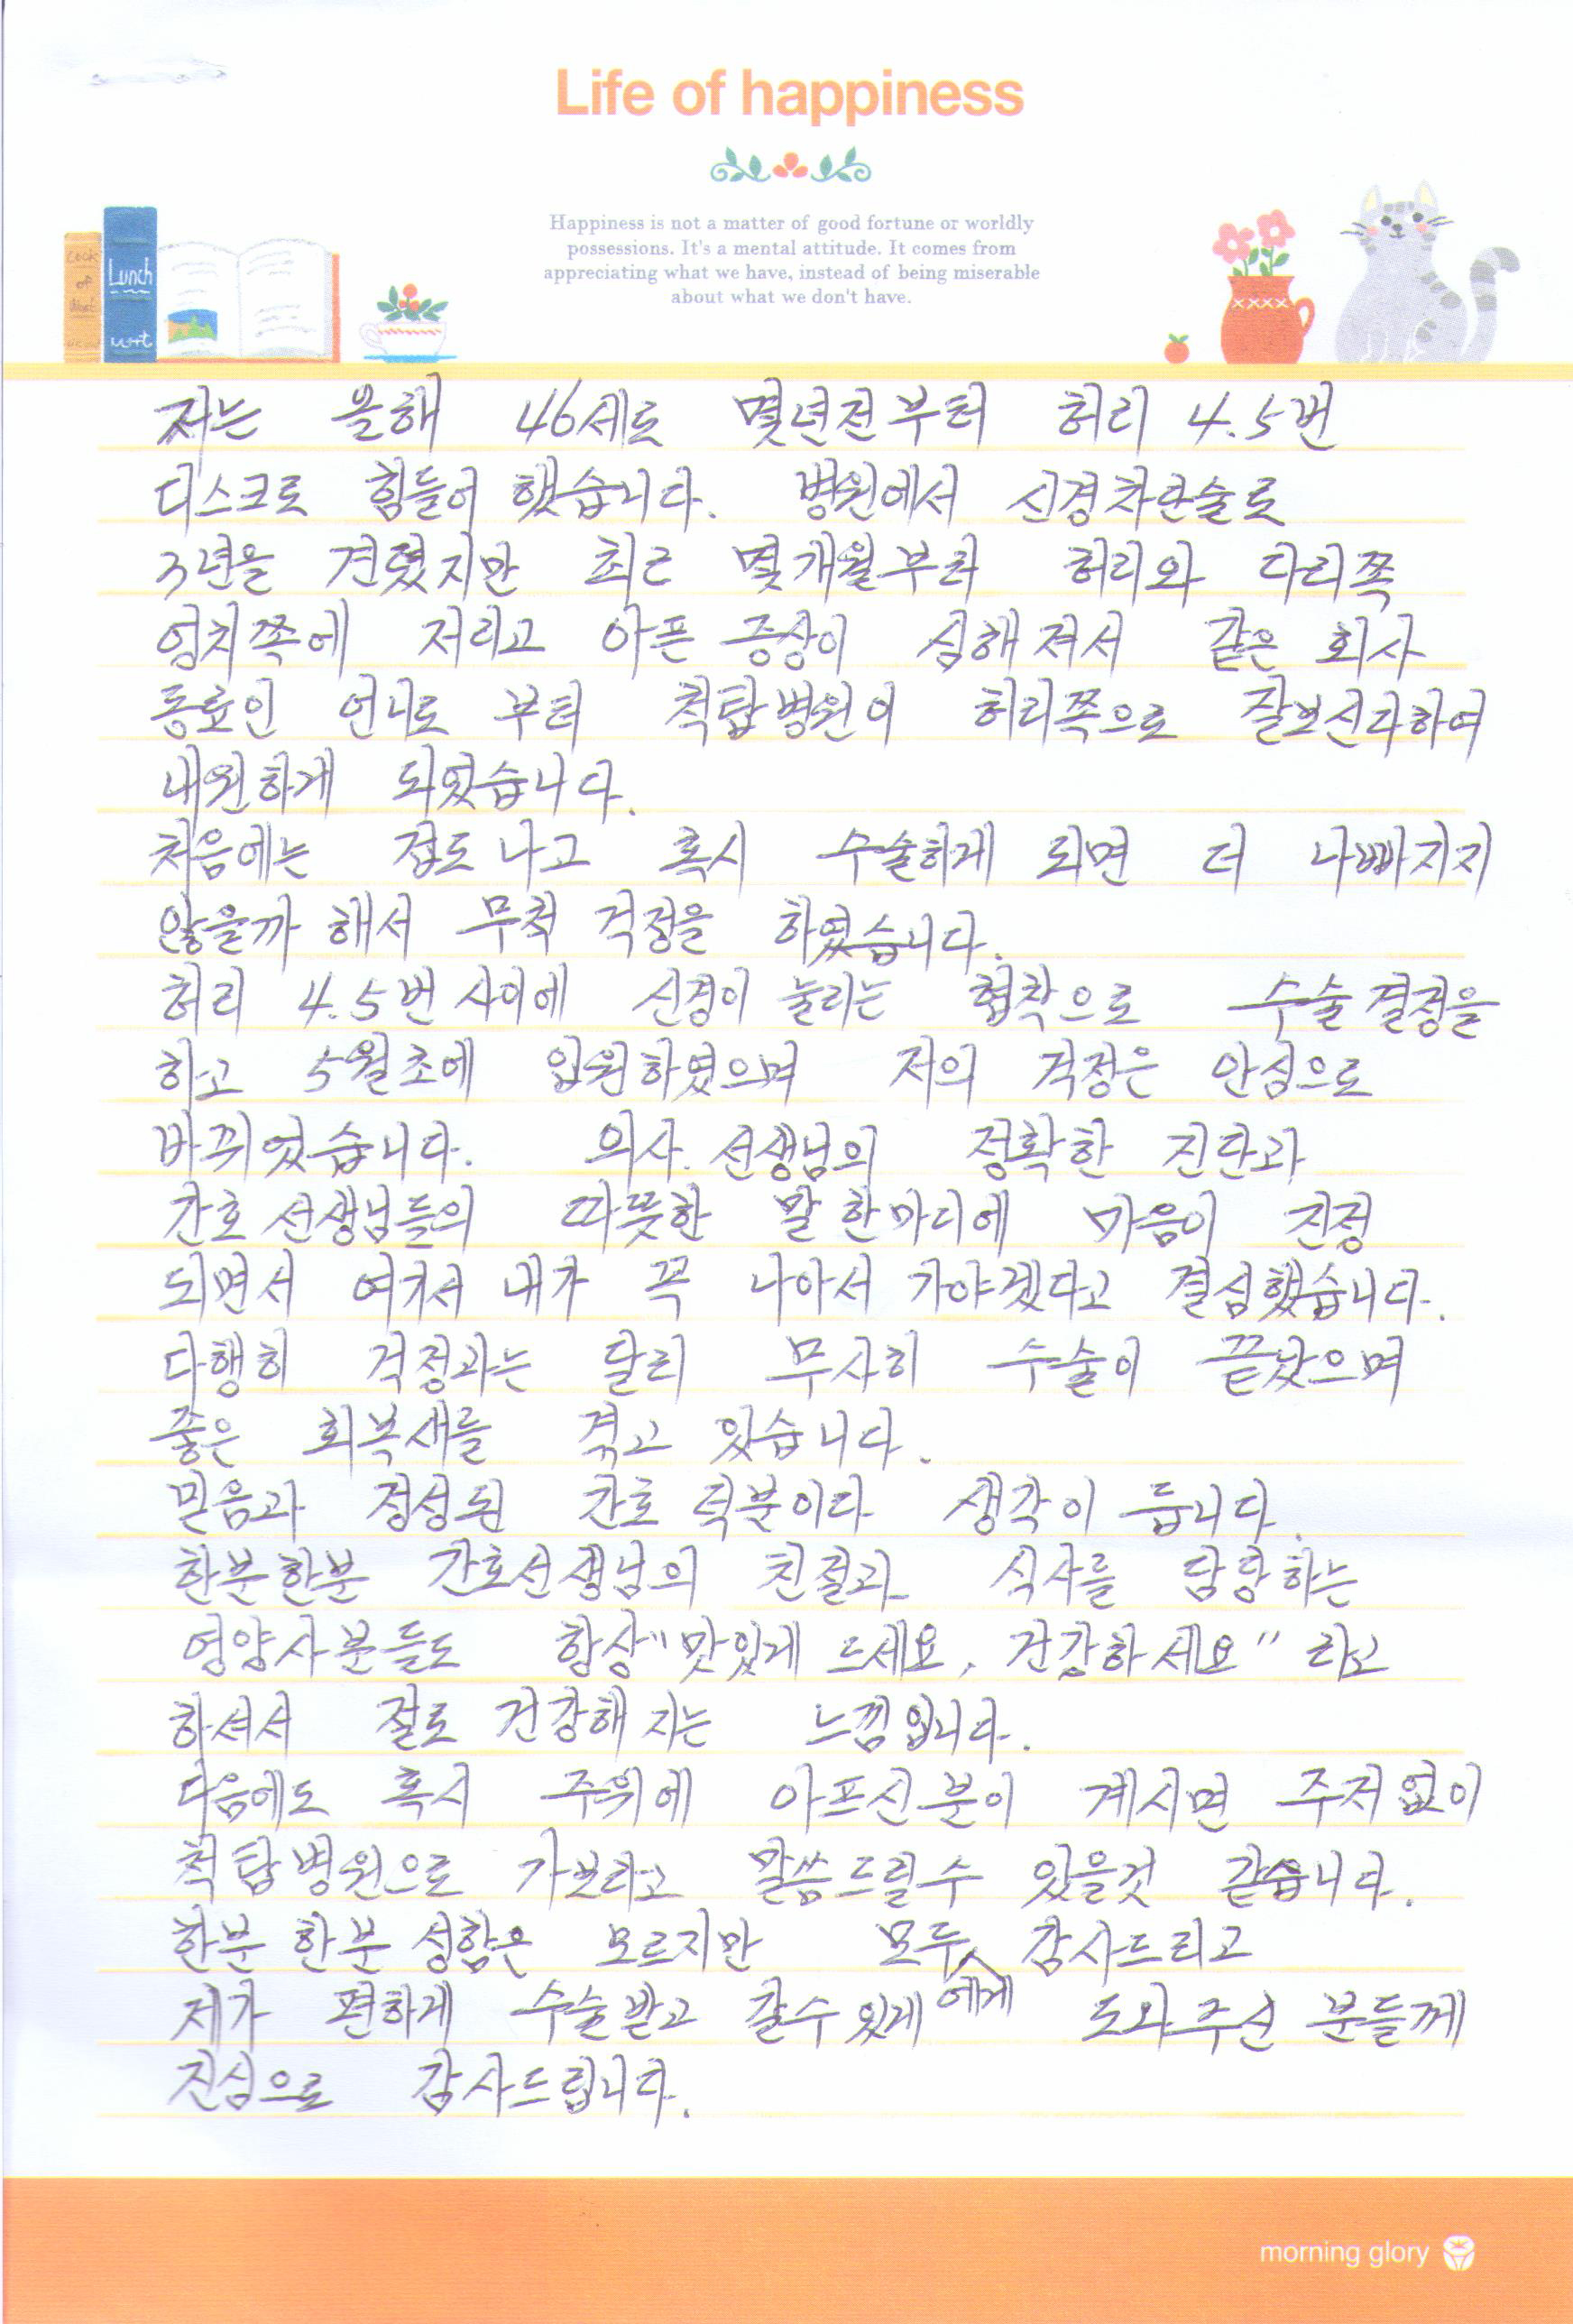 Life of happiness
Happiness is not a matter of good fortune or worldly
possessions. It's a mental attitude. It comes from
appreciating what we have, instead of being miserable
about what we don't have.
Lunch
저는 올해 46세로 몇년전부터 허리 4.5번
디스크로 힘들어 했습니다. 병원에서 신경차단술로
3년을 견뎠지만 최근 몇개월부터 허리와 다리쪽
엉치쪽에 저리고 아픈 증상이 심해져서 같은 회사
동료인 언니로 부터 척탑병원이 허리쪽으로 잘보신다하여
내원하게 되었습니다.
처음에는 겁도 나고 혹시 수술하게 되면 더 나빠지지
않을까 해서 무척 걱정을 하였습니다.
허리 4.5번 사이에 신경이 눌리는 협착으로 수술 결정을
하고 5월초에 입원하였으며 저의 걱정은 안심으로
바뀌었습니다. 의사.선생님의 정확한 진단과
간호 선생님들의 따뜻한 말 한마디에 마음이 진정
되면서 여기서 내가 꼭 나아서 가야겠다고 결심했습니다.
다행히 걱정과는 달리 무사히 수술이 끝났으며
좋은 회복세를 겪고 있습니다.
믿음과 정성된 간호 덕분이다 생각이 듭니다.
한분한분 간호선생님의 친절과 식사를 담당하는
영양사분들도 항상"맛있게 드세요, 건강하세요" 라고
하셔서 절로 건강해 지는 느낌입니다.
다음에도 혹시 주위에 아프신분이 계시면 주저없이
척탑병원으로 가보라고 말씀드릴수 있을것 같습니다.
한분 한분 성함은 모르지만 모두에게 감사드리고
제가 편하게 수술받고 갈수있게 도와주신 분들께
진심으로 감사드립니다.
morning glory